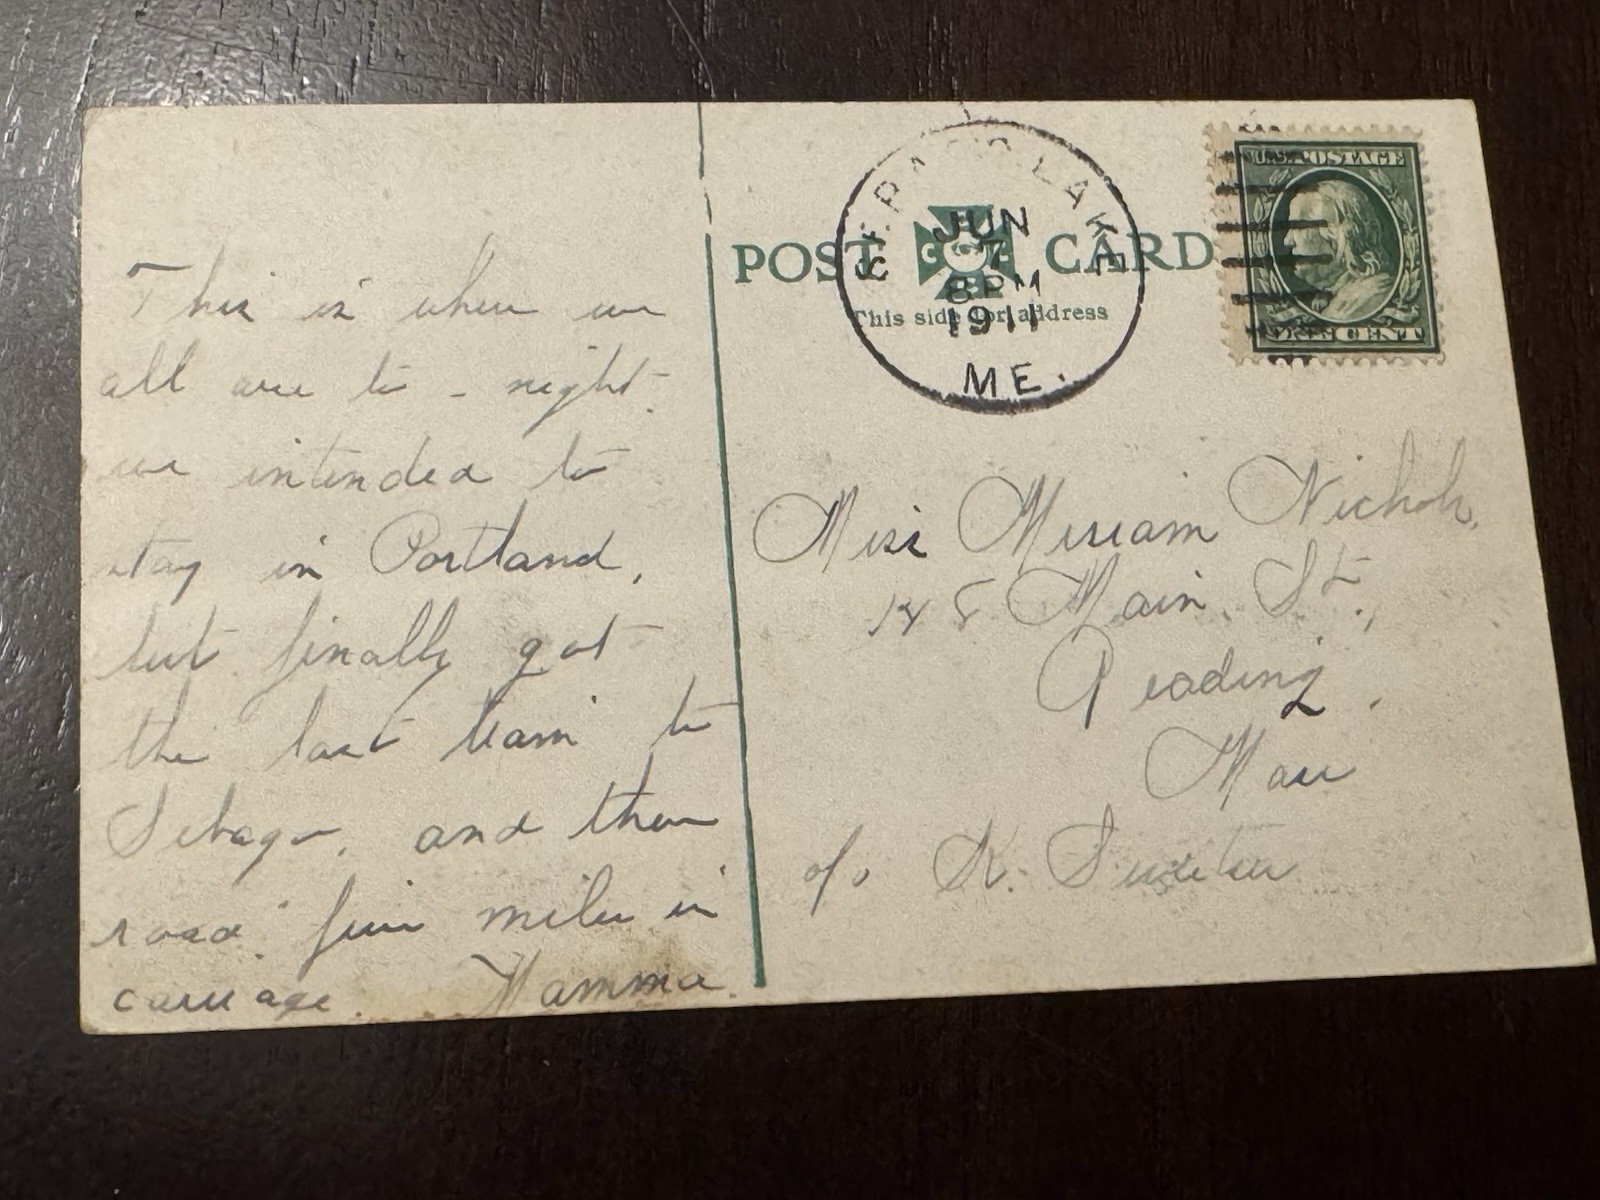 This is where we
all are to-night.
we intended to
stay in Portland,
but finally got
the last train to
Sebago, and then
road five miles in
carriage. Mamma.
POST CARD
This side for address
SEBAGO LAKE
JUN
8 PM
1911
ME.
U.S. POSTAGE
ONE CENT
Miss Miriam Nichols,
Main St.,
Reading,
Mass
c/o K. Sweetser